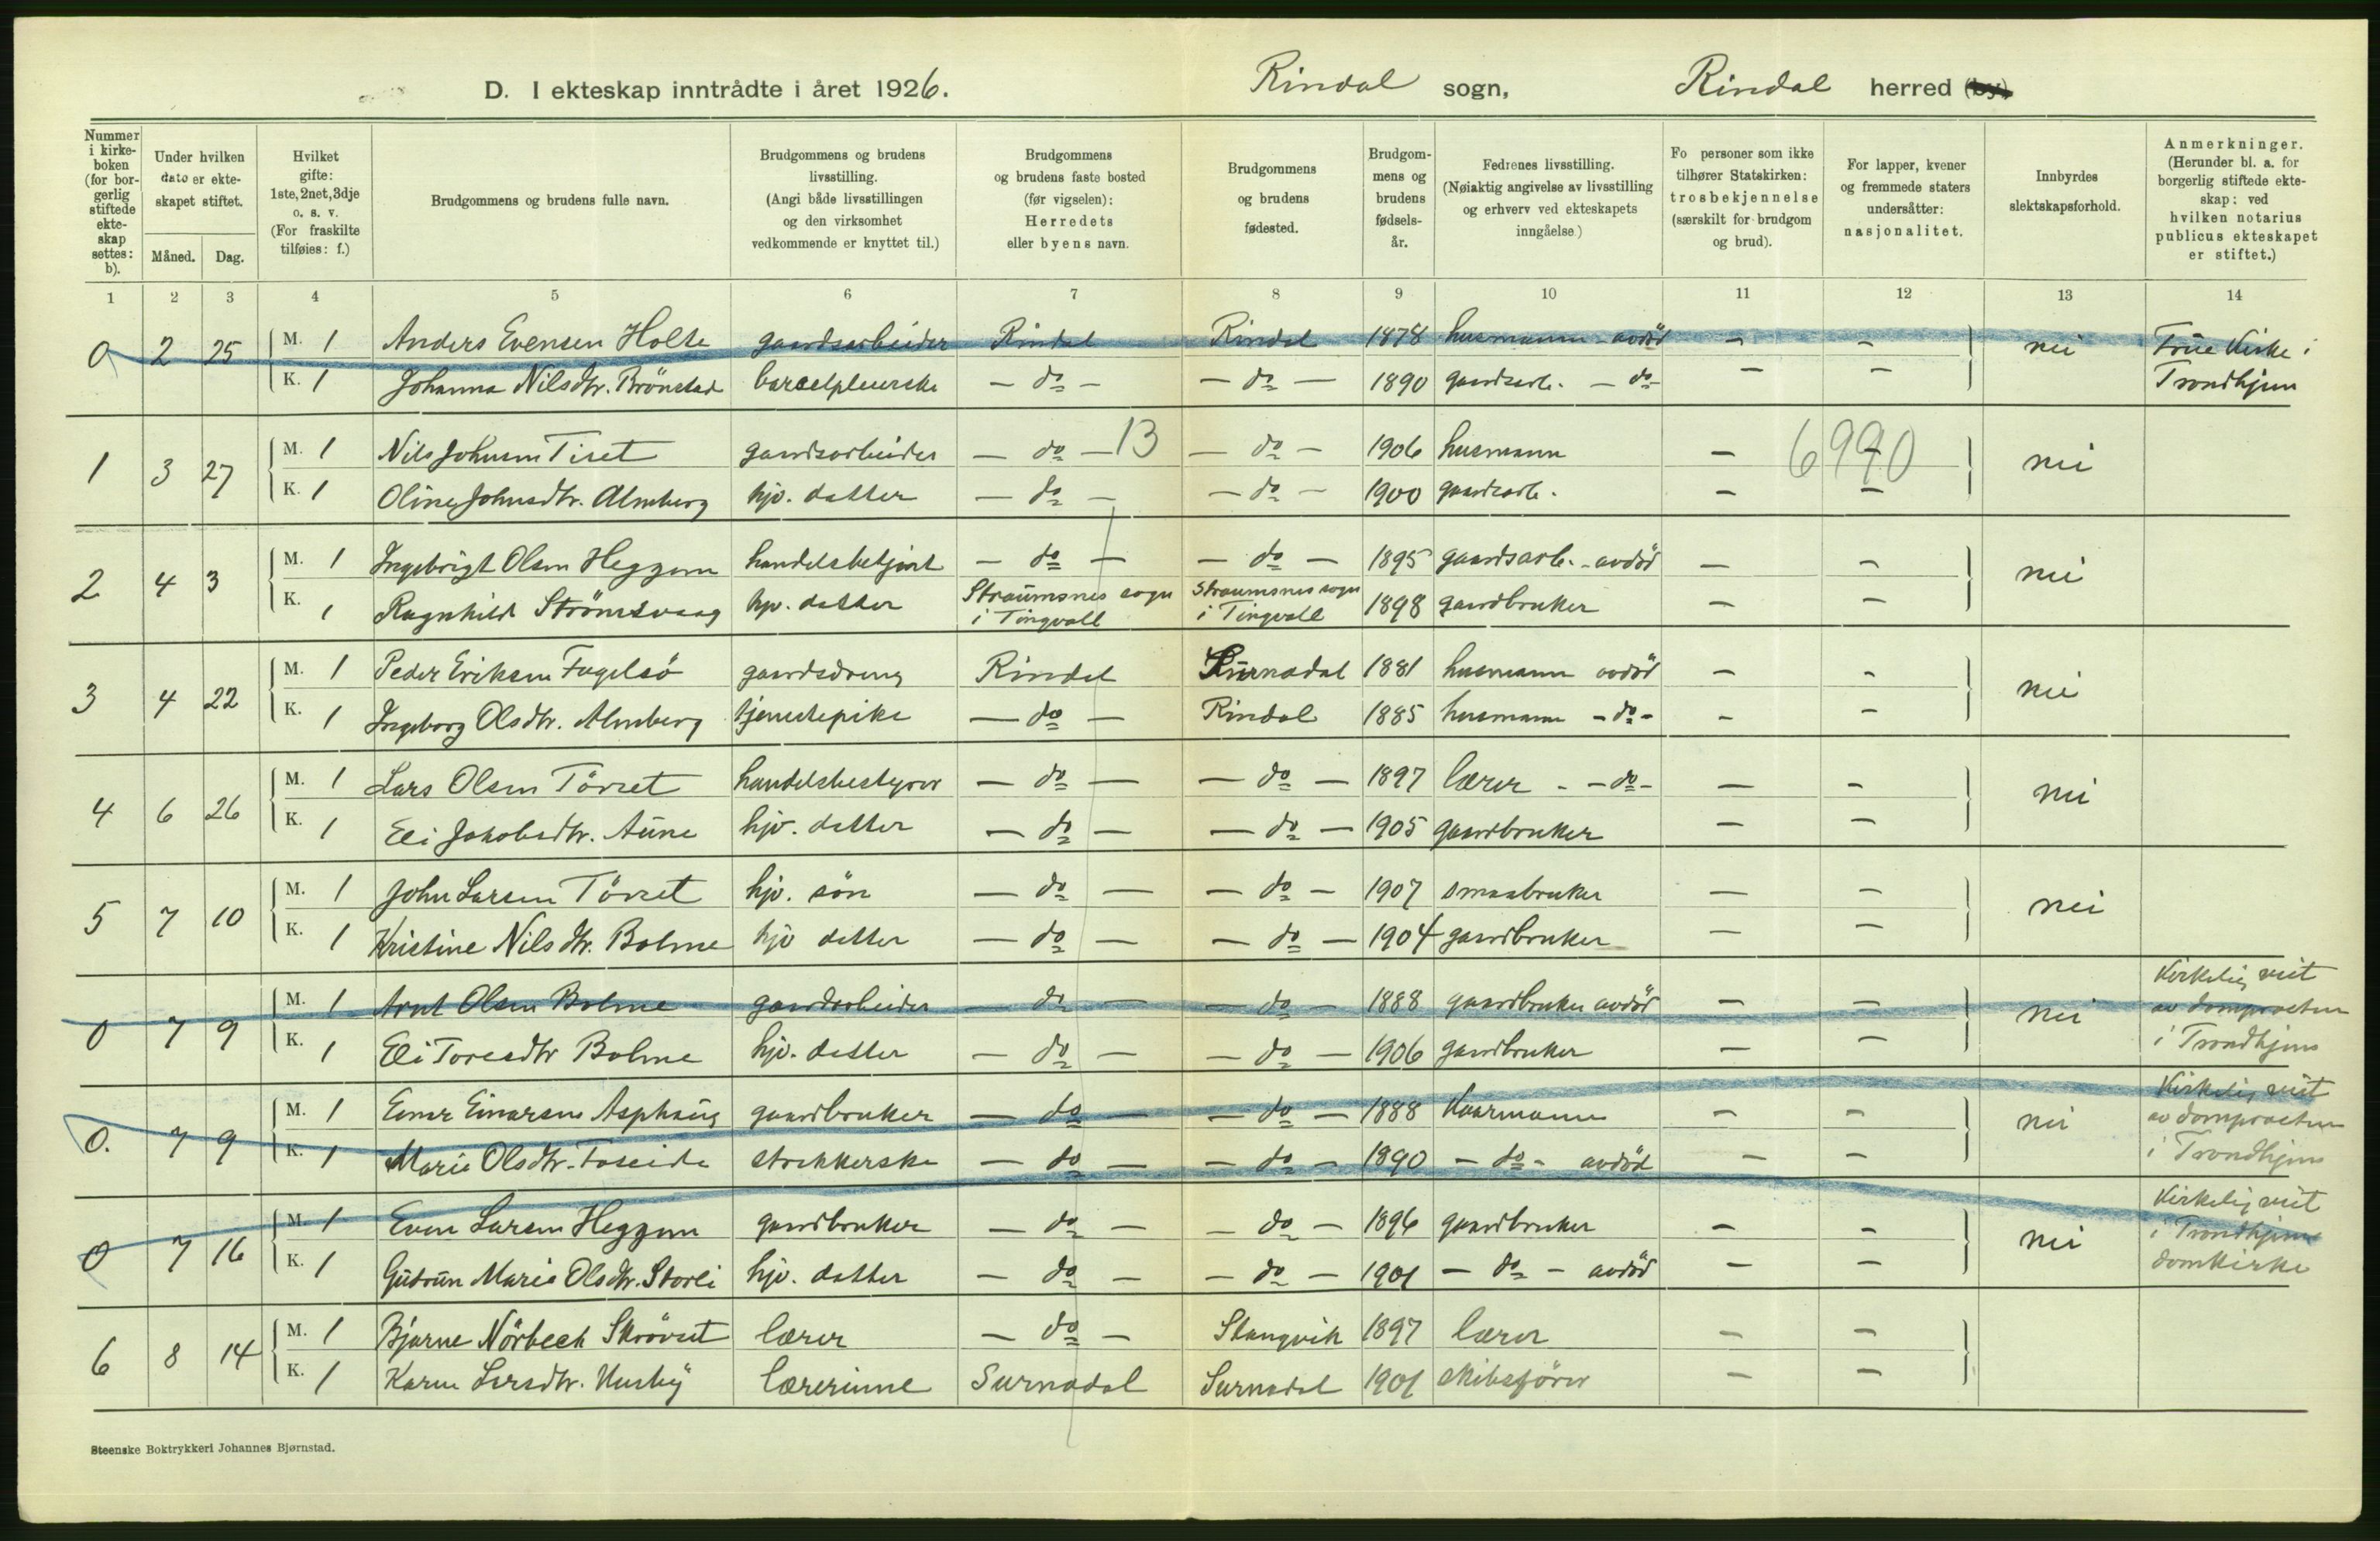 D. I ekteskap inntrådte i året 1926. Rindal sogn, Rindal herred (by).
Nummer i kirkeboken (for borgerlig stiftede ekteskap settes: b).
Under hvilken dato er ekteskapet stiftet.
Måned. Dag.
Hvilket gifte: 1ste, 2net, 3dje o. s. v. (For fraskilte tilføies: f.)
Brudgommens og brudens fulle navn.
Brudgommens og brudens livsstilling. (Angi både livsstillingen og den virksomhet vedkommende er knyttet til.)
Brudgommens og brudens faste bosted (før vigselen): Herredets eller byens navn.
Brudgommens og brudens fødested.
Brudgommens og brudens fødselsår.
Fedrenes livsstilling. (Nøiaktig angivelse av livsstilling og erhverv ved ekteskapets inngåelse.)
Fo personer som ikke tilhører Statskirken: trosbekjennelse (særskilt for brudgom og brud).
For lapper, kvener og fremmede staters undersåtter: nasjonalitet.
Innbyrdes slektskapsforhold.
Anmerkninger. (Herunder bl. a. for borgerlig stiftede ekteskap: ved hvilken notarius publicus ekteskapet er stiftet.)
1 2 3 4 5 6 7 8 9 10 11 12 13 14
0 2 25 M. 1 Anders Evensen Holte gaardsarbeider Rindal Rindal 1878 husmann - avdöd - - nei Frue Kirke i
K. 1 Johanna Nilsdtr. Brönstad barselpleierske - do - - do - 1890 gaardsarb. - do - - - Trondhjem
1 3 27 M. 1 Nils Johnsen Tiset gaardsarbeider - do - 13 - do - 1906 husmann - 6990 - nei
K. 1 Oline Johnsdtr. Almberg hjv. datter - do - - do - 1900 gaardsarb. - -
2 4 3 M. 1 Ingebrigt Olsen Heggem handelsbetjent - do - - do - 1895 gaardsarb. - avdöd - - nei
K. 1 Ragnhild Strömsvaag hjv. datter Straumsnes sogn i Tingvoll Straumsnes sogn i Tingvoll 1898 gaardbruker - -
3 4 22 M. 1 Peder Eriksen Fugelsö gaardsdreng Rindal Surnadal 1881 husmann avdöd - - nei
K. 1 Ingeborg Olsdtr. Almberg tjenestepike - do - Rindal 1885 husmann - do - - -
4 6 26 M. 1 Lars Olsen Törset handelsbestyrer - do - - do - 1897 lærer - - do - - - nei
K. 1 Eli Jakobsdtr. Aune hjv. datter - do - - do - 1905 gaardbruker - -
5 7 10 M. 1 John Larsen Törset hjv. sön - do - - do - 1907 smaabruker - - nei
K. 1 Kristine Nilsdtr. Bolme hjv datter - do - - do - 1904 gaardbruker - -
0 7 9 M. 1 Arnt Olsen Bolme gaardarbeider - do - - do - 1888 gaardbruker avdöd - - nei Kirkelig viet av domprosten
K. 1 Eli Toresdtr Bolme hjv. datter - do - - do - 1906 gaardbruker - - i Trondhjem
0. 7 9 M. 1 Einar Einarsen Asphaug gaardbruker - do - - do - 1888 Kaarmann - - nei Kirkelig viet av domprosten
K. 1 Marie Olsdtr. strikkerske - do - - do - 1890 - do - avdöd - - i Trondhjem
0 7 16 M. 1 Even Larsen Heggem gaardbruker - do - - do - 1896 gaardbruker - - nei Kirkelig viet i Trondhjems
K. 1 Gudrun Marie Olsdtr. Storli hjv. datter - do - - do - 1901 - do - avdöd - - domkirke
6 8 14 M. 1 Bjarne Nörbech Skrövset lærer - do - Stangvik 1897 lærer - -
K. 1 Karen Larsdtr. Husby lærerinne Surnadal Surnadal 1901 skibsförer - -
Steenske Boktrykkeri Johannes Bjørnstad.